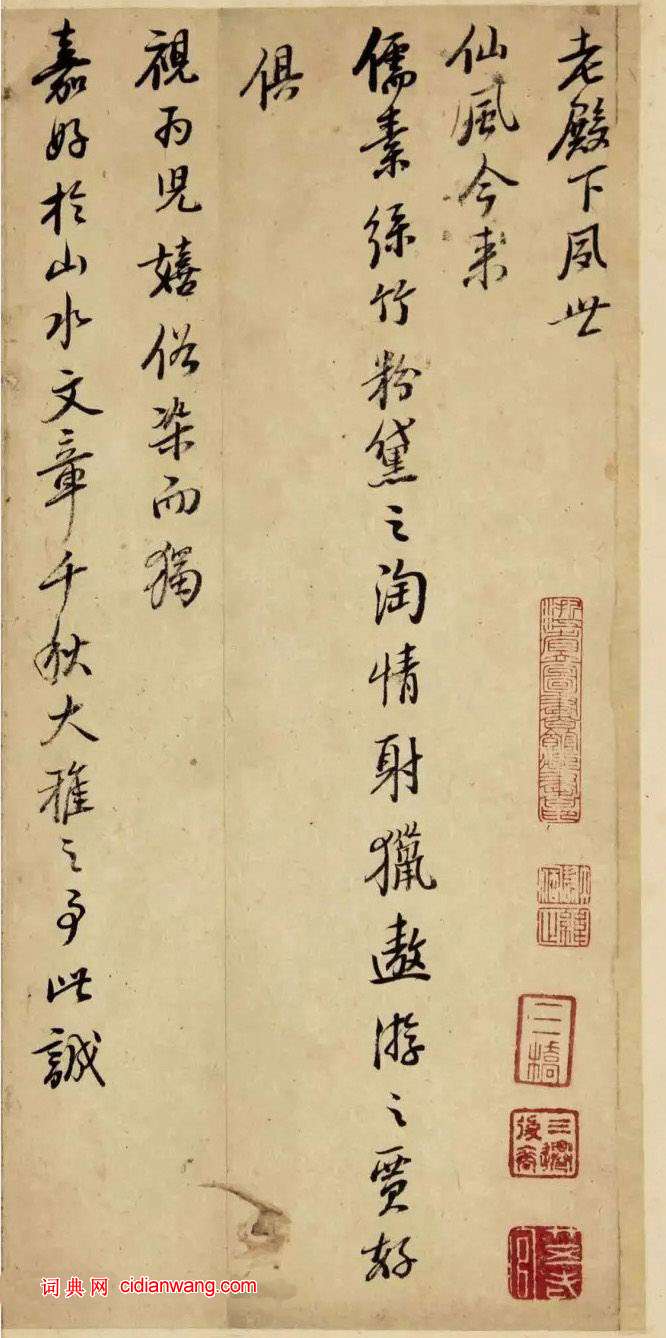 老殿下夙世
仙風今来
儒素絲竹粉黛之淘情射獵遨游之賈好
俱
視為児嬉俗染而獨
嘉好於山水文章千秋大雅之事此誠
三橋
三橋後裔
词典网 cidianwang.com